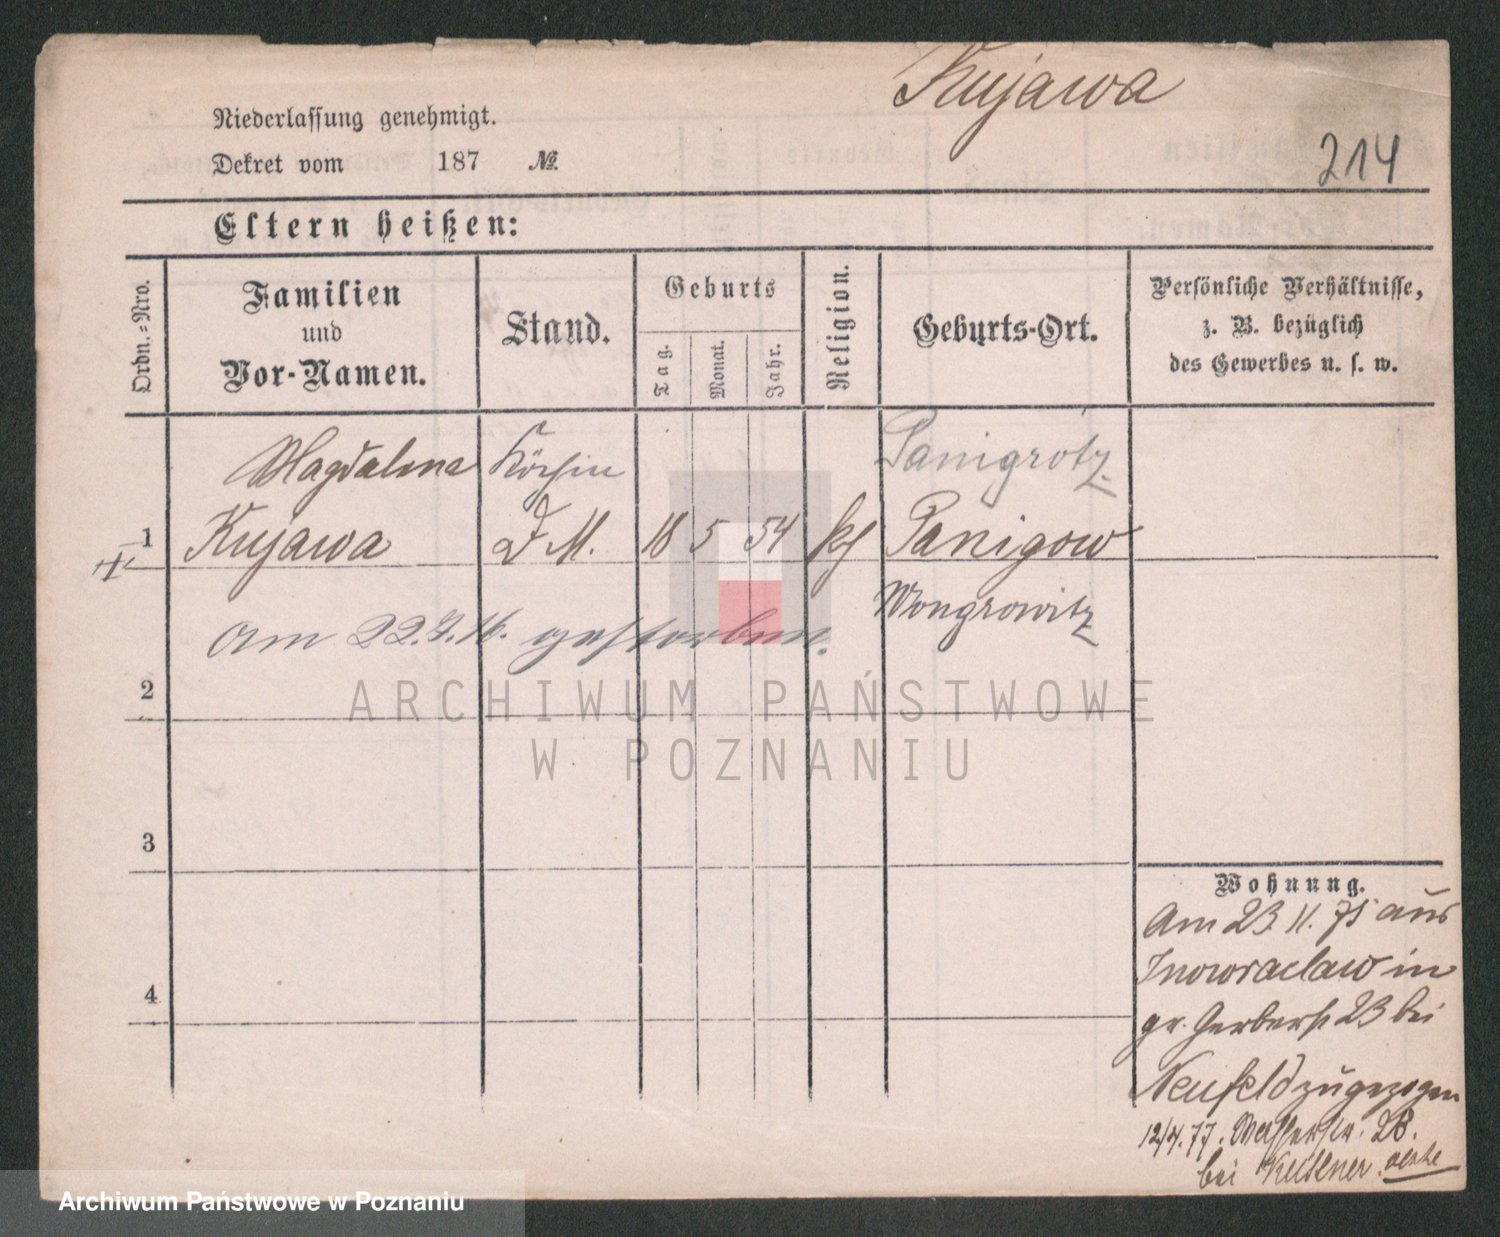 Kujawa
Niederlassung genehmigt.
214
Dekret vom 187 №
Eltern heißen:
Ordn.=Nro.
Familien
und
Vor-Namen.
Stand.
Geburts
Tag.
Monat.
Jahr.
Religion.
Geburts-Ort.
Persönliche Verhältnisse,
z. B. bezüglich
des Gewerbes u. s. w.
Magdalena Köchin Panigrotz
1 Kujawa D M. 18 5 54 kf Panigow
Wongrowitz
am 22.7.16. gestorben.
2
3
4
Wohnung.
Am 23. 11. 75 aus
Inowraclaw in
gr. Gerberst 23 bei
Neufeld zugezogen
12/4.77. Wasserstr. 28.
bei
ARCHIWUM PAŃSTWOWE
W POZNANIU
Archiwum Państwowe w Poznaniu